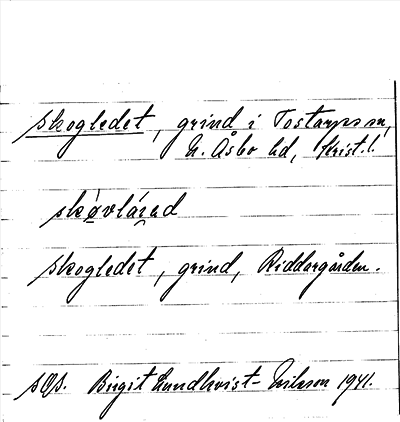 Skogledet, grind i Tostarps sn,
N. Åsbo hd, Krist. l.
skøvláræd
Skogledet, grind, Riddargården.
SOS. Birgit Lundkvist-Nilsson 1941.